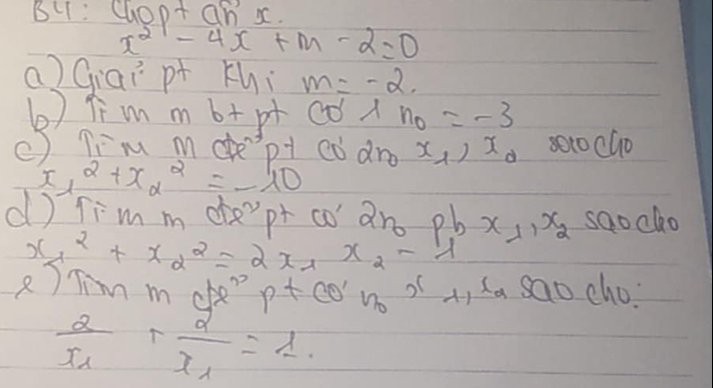 B4: Cho pt ẩn x.
x² - 4x + m - 2 = 0
a) Giải pt khi m = -2.
b) Tìm m bt pt có 1 n₀ = -3
c) Tìm m để pt có 2n₀ x₁, x₂ sao cho
x₁² + x₂² = -10
d) Tìm m để pt có 2n₀ pb x₁, x₂ sao cho
x₁² + x₂² = 2x₁ x₂ - 1
e) Tìm m để pt có n₀ x₁, x₂ sao cho:
2/x₁ + 2/x₁ = 1.